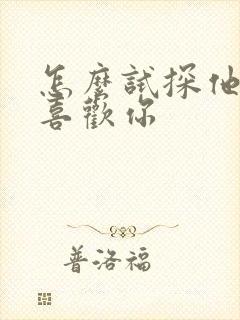 怎麼試探他
喜歡你
普洛福